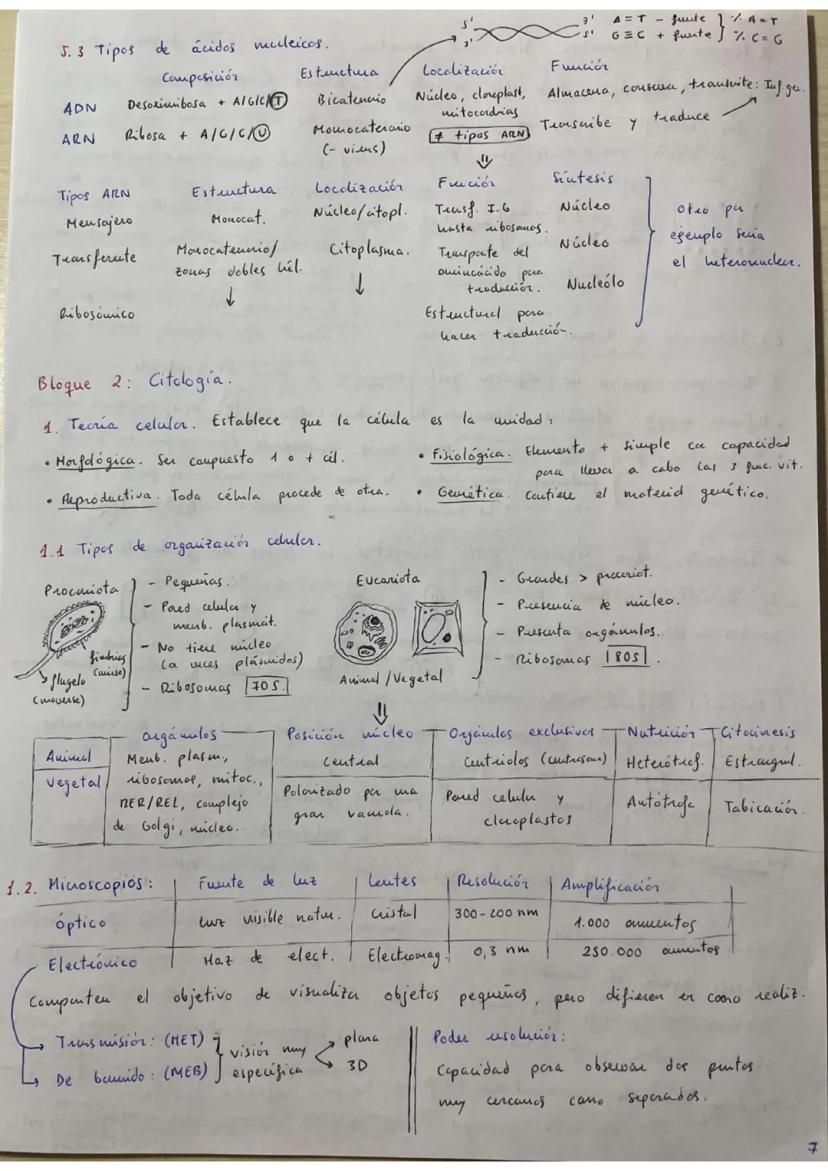 5.3 Tipos de ácidos nucleicos.
5' 3' A=T - fuerte } % A=T
3' 5' G≡C + fuerte } % C=G
Composición Estructura Localización Función
ADN Desoxirribosa + A/G/C/T Bicatenario Núcleo, cloroplast, mitocondrias Almacena, conserva, transmite: Inf. gen.
ARN Ribosa + A/G/C/U Monocatenario (- virus) ≠ tipos ARN Transcribe y traduce
Tipos ARN Estructura Localización Función Síntesis
Mensajero Monocat. Núcleo/citopl. Transf. I.G hasta ribosomas. Núcleo
Transferente Monocatenario/ zonas dobles hél. Citoplasma. Transporte del aminoácido para traducción. Núcleo
Ribosómico Estructural para hacer traducción. Nucleólo
Otro por ejemplo sería el heteronuclear.
Bloque 2: Citología.
1. Teoría celular. Establece que la célula es la unidad:
• Morfológica. Ser compuesto 1 o + cél.
• Fisiológica. Elemento + simple con capacidad
para llevar a cabo las 3 func. vit.
• Reproductiva. Toda célula procede de otra.
• Genética. Contiene el material genético.
1.1 Tipos de organización celular.
Procariota
fimbrias (unirse)
flagelo (moverse)
- Pequeñas.
- Pared celular y
memb. plasmát.
- No tiene núcleo
(a veces plásmidos)
- Ribosomas 70S.
Eucariota
Animal/Vegetal
- Grandes > procariot.
- Presencia de núcleo.
- Presenta orgánulos.
- Ribosomas 80S.
Orgánulos Posición núcleo Orgánulos exclusivos Nutrición Citocinesis
Animal Central Centriolos (centrosoma) Heterótrof. Estrangul.
Vegetal Polarizado por una gran vacuola. Pared celular y cloroplastos Autótrofa Tabicación.
Memb. plasm,
ribosomas, mitoc.,
RER/REL, complejo
de Golgi, núcleo.
1.2. Microscopios: Fuente de luz Lentes Resolución Amplificación
óptico luz visible natur. Cristal 300-200 nm 1.000 aumentos
Electrónico Haz de elect. Electromag. 0,3 nm 250.000 aumentos
Comparten el objetivo de visualizar objetos pequeños, pero difieren en como realiz.
Transmisión: (MET)
De barrido: (MEB)
visión muy específica
plana
3D
Poder resolución:
Capacidad para observar dos puntos
muy cercanos como separados.
7